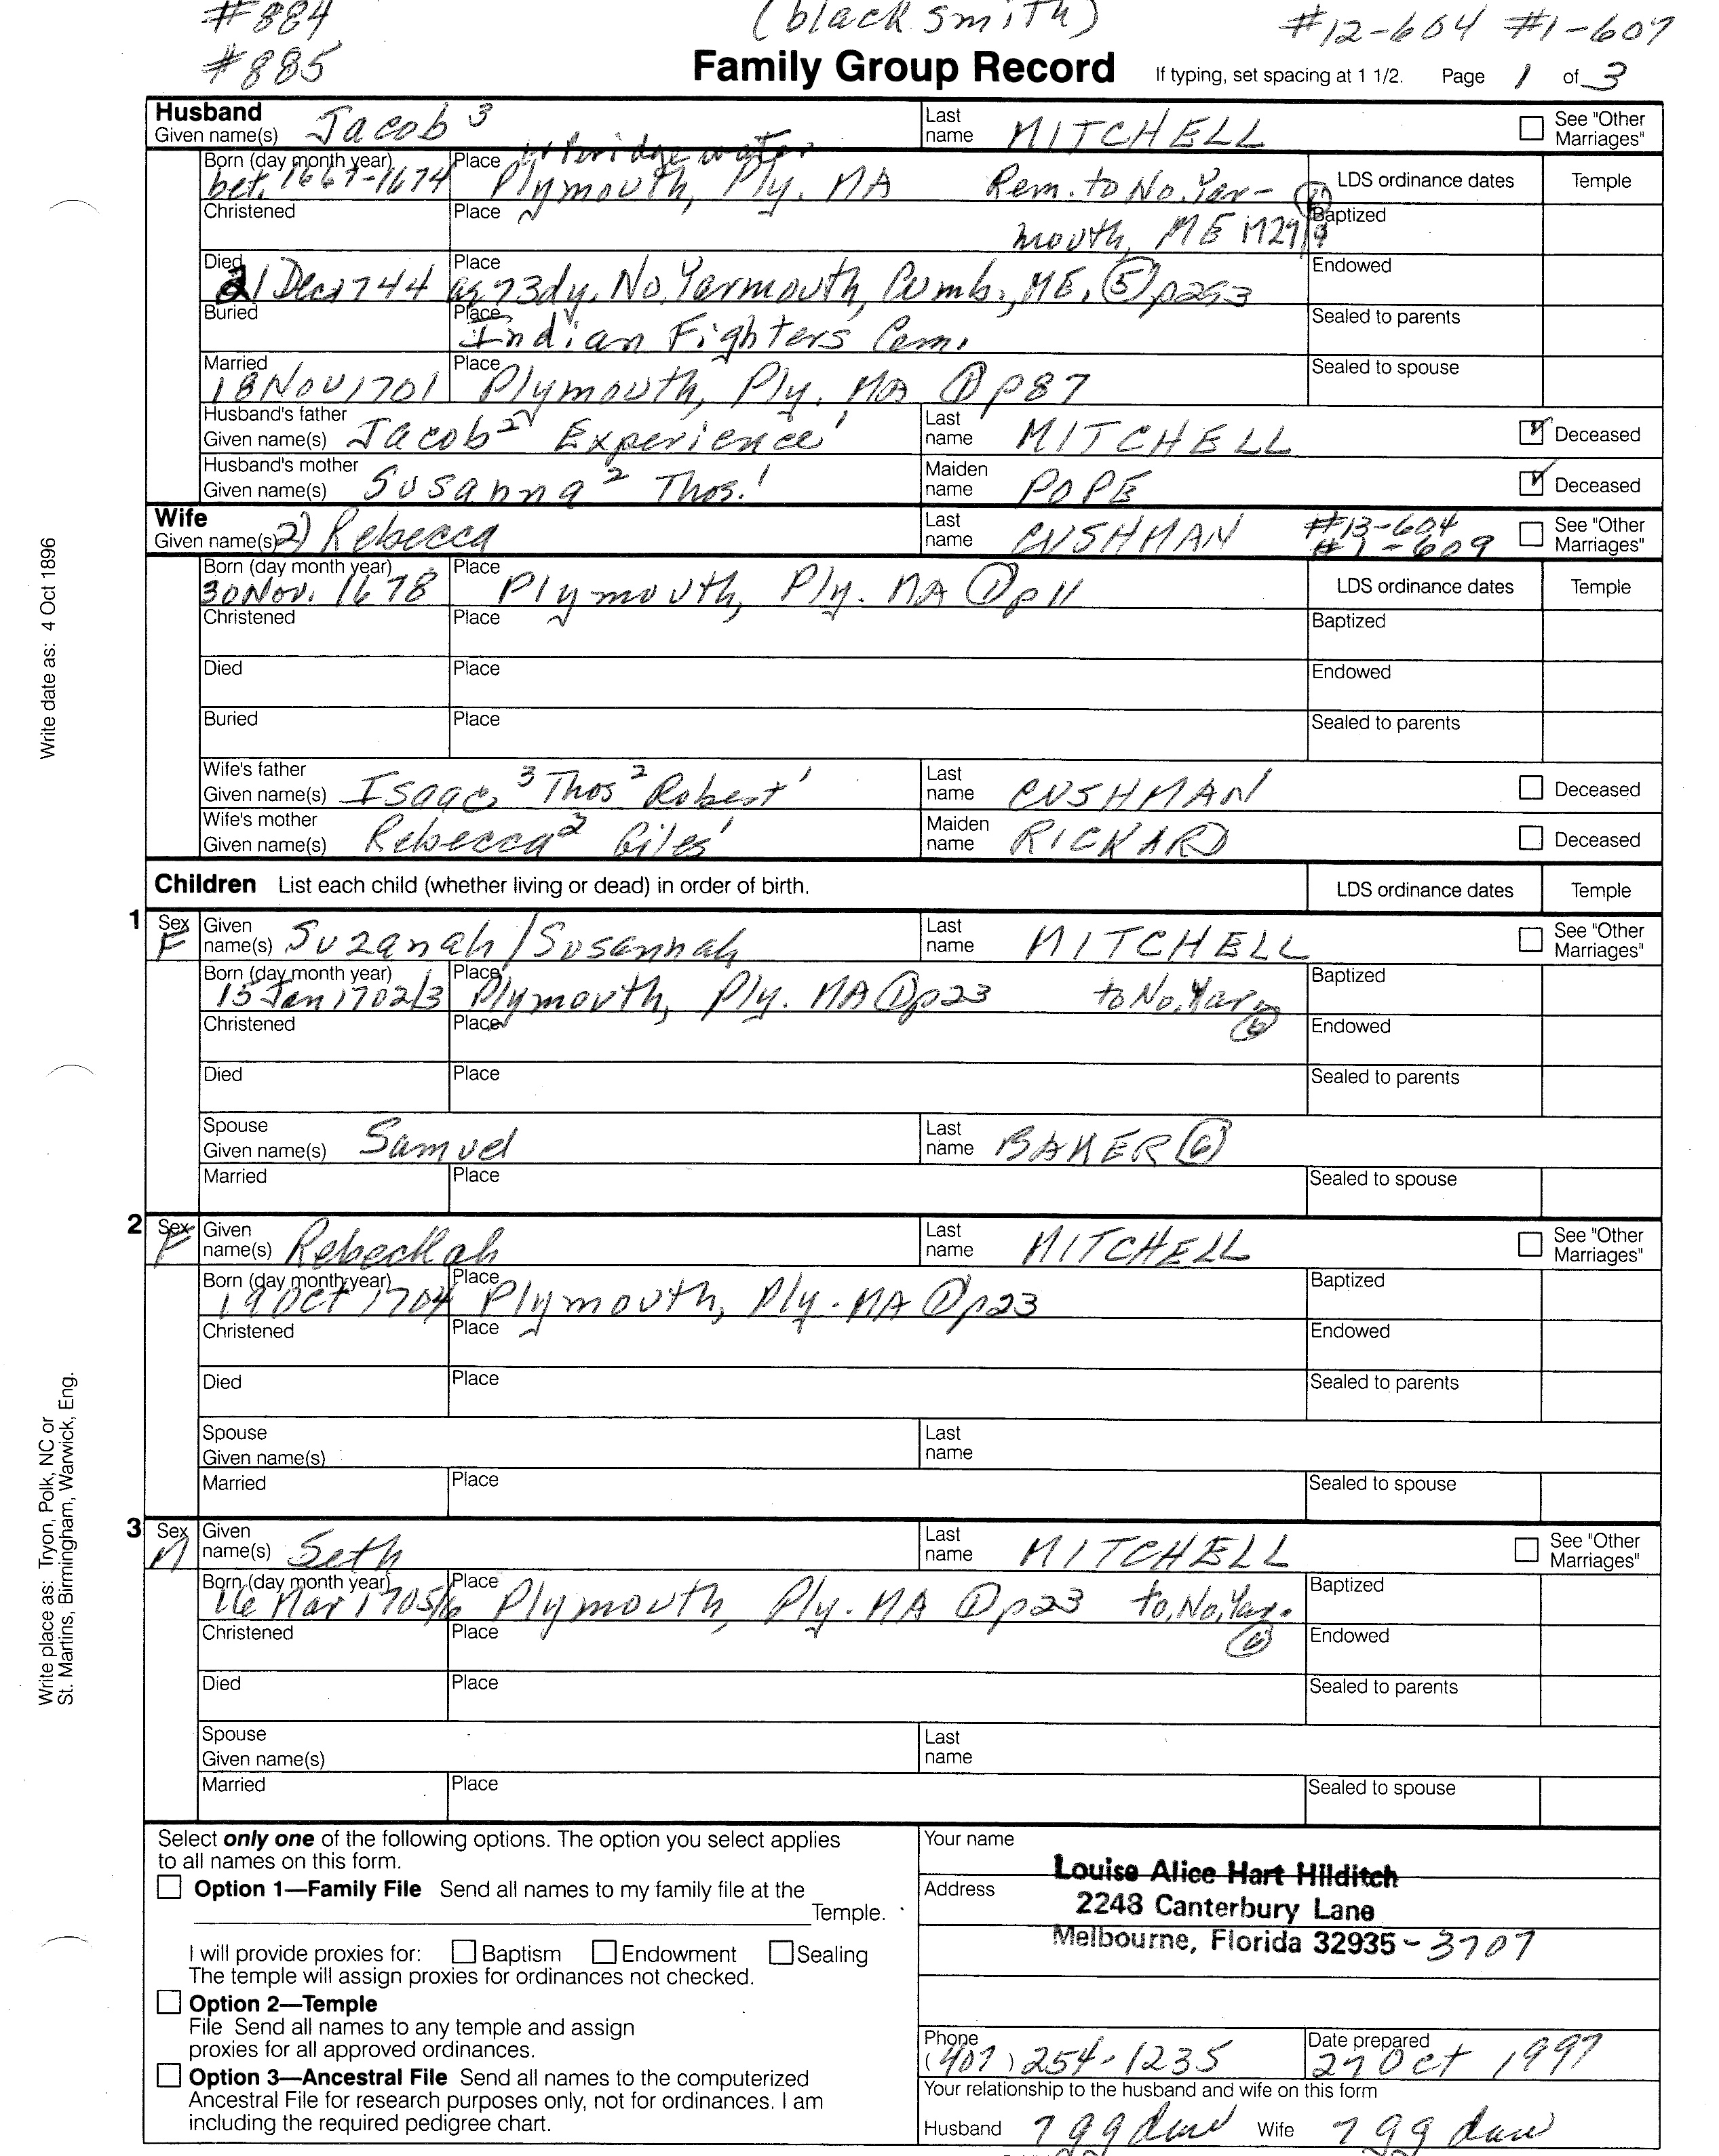 #884 (blacksmith) #12-604 #1-607
#885 Family Group Record If typing, set spacing at 1 1/2. Page 1 of 3
Husband
Given name(s) Jacob 3 Last name MITCHELL See "Other Marriages"
or bridgewater
Born (day month year) bet. 1667-1674 Place Plymouth, Ply. MA Rem. to No. Yar- LDS ordinance dates Temple
Christened Place mouth, ME Baptized
Died 21 Dec 1744 Place ag 73dy. No. Yarmouth, Cumb., ME. (5) p253 Endowed
Buried Place Indian Fighters Cem. Sealed to parents
Married 18 Nov 1701 Place Plymouth, Ply. MA (1) p87 Sealed to spouse
Husband's father
Given name(s) Jacob 2 Experience 1 Last name MITCHELL Deceased
Husband's mother
Given name(s) Susanna 2 Thos. 1 Maiden name POPE Deceased
Wife
Given name(s) 2) Rebecca Last name CUSHMAN #13-604 See "Other Marriages"
#1-609
Born (day month year) 30 Nov. 1678 Place Plymouth, Ply. MA (1) p11 LDS ordinance dates Temple
Christened Place Baptized
Died Place Endowed
Buried Place Sealed to parents
Wife's father
Given name(s) Isaac 3 Thos 2 Robert 1 Last name CUSHMAN Deceased
Wife's mother
Given name(s) Rebecca 2 Giles 1 Maiden name RICKARD Deceased
Children List each child (whether living or dead) in order of birth. LDS ordinance dates Temple
1 Sex F Given name(s) Suzanah/Susannah Last name MITCHELL See "Other Marriages"
Born (day month year) 15 Jan 1702/3 Place Plymouth, Ply. MA (1) p23 to No. Yar. Baptized
Christened Place (6) Endowed
Died Place Sealed to parents
Spouse
Given name(s) Samuel Last name BAKER (6)
Married Place Sealed to spouse
2 Sex F Given name(s) Rebeckah Last name MITCHELL See "Other Marriages"
Born (day month year) 19 Oct 1704 Place Plymouth, Ply. MA (1) p23 Baptized
Christened Place Endowed
Died Place Sealed to parents
Spouse
Given name(s) Last name
Married Place Sealed to spouse
3 Sex M Given name(s) Seth Last name MITCHELL See "Other Marriages"
Born (day month year) 16 Mar 1705/6 Place Plymouth, Ply. MA (1) p23 to, No, Yar. Baptized
Christened Place (6) Endowed
Died Place Sealed to parents
Spouse
Given name(s) Last name
Married Place Sealed to spouse
Select only one of the following options. The option you select applies
to all names on this form.
Option 1—Family File Send all names to my family file at the
Temple.
I will provide proxies for: Baptism Endowment Sealing
The temple will assign proxies for ordinances not checked.
Option 2—Temple
File Send all names to any temple and assign
proxies for all approved ordinances.
Option 3—Ancestral File Send all names to the computerized
Ancestral File for research purposes only, not for ordinances. I am
including the required pedigree chart.
Your name Louise Alice Hart Hilditch
Address 2248 Canterbury Lane
Melbourne, Florida 32935-3707
Phone (407) 254-1235 Date prepared 27 Oct 1997
Your relationship to the husband and wife on this form
Husband 7 gg dau Wife 7 gg dau
Write date as: 4 Oct 1896
Write place as: Tryon, Polk, NC or
St. Martins, Birmingham, Warwick, Eng.